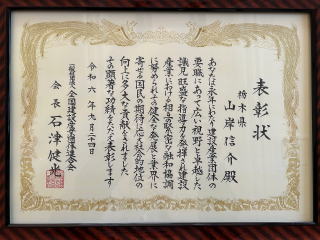 表彰状
栃木県
山岸信介殿
あなたは永年にわたり建設産業団体の
要職にあって広い視野と卓越した
識見旺盛な指導力を発揮され建設
産業における相互緊密な融和協調
に努められその健全な発展と業界に
寄せる国民の期待に応え社会的地位の
向上に多大な貢献をされました
その顕著な功績をたたえ表彰します
令和六年九月二十四日
一般社団法人全国建設産業団体連合会
会長 石津健光